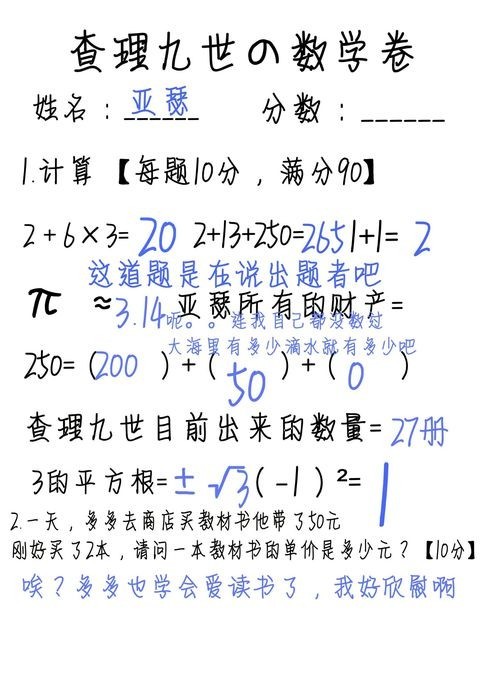 查理九世の数学卷
姓名：亚瑟 分数：______
1.计算【每题10分，满分90】
2+6×3=20 2+13+250=265 1+1=2
这道题是在说出题者吧
π ≈3.14 亚瑟所有的财产=
呃。。连我自己都没数过
大海里有多少滴水就有多少吧
250=（200）+（50）+（0）
查理九世目前出来的数量=27册
3的平方根=±√3 (-1)²=1
2.一天，多多去商店买教材书他带了50元
刚好买了2本，请问一本教材书的单价是多少元？【10分】
唉？多多也学会爱读书了，我好欣慰啊